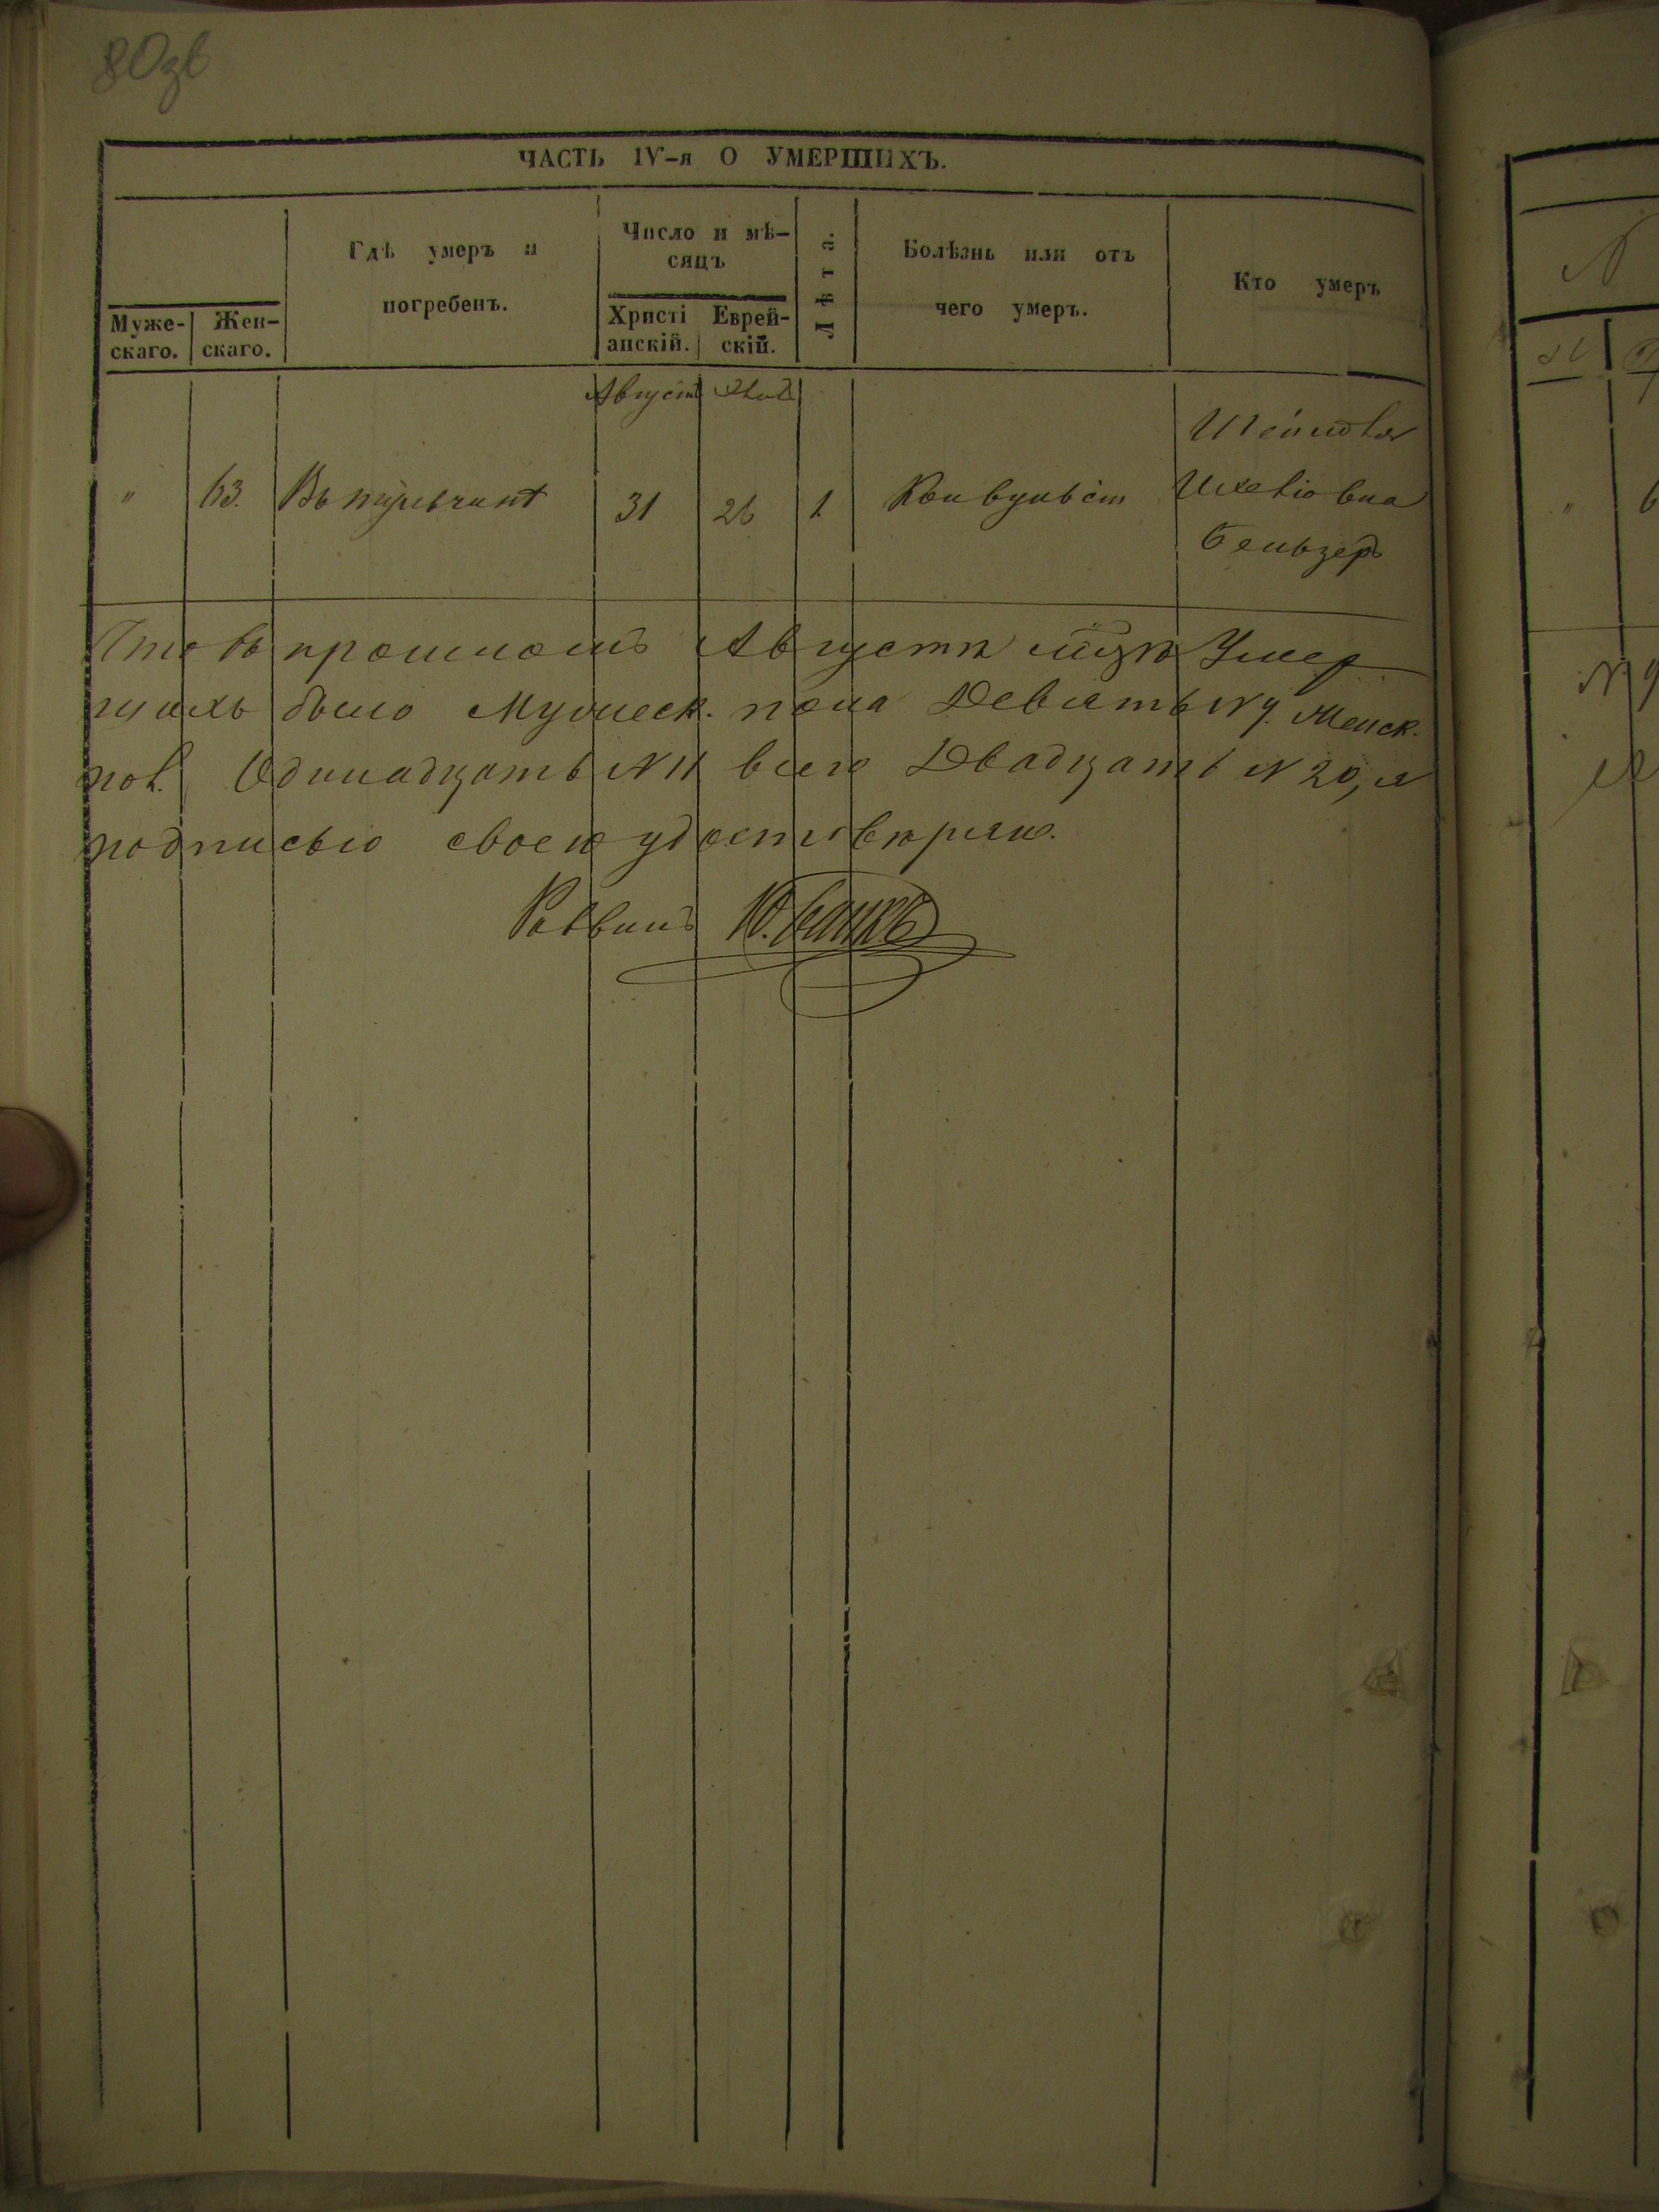 80зв
ЧАСТЬ IV-я О УМЕРШИХЪ.
Муже-
скаго.
Жен-
скаго.
Гдѣ умеръ и
погребенъ.
Число и мѣ-
сяцъ
Христі
анскій.
Еврей-
скій.
Лѣта.
Болѣзнь или отъ
чего умеръ.
Кто умеръ
Августъ
" 63. Въ 31 26 1. Конвульсіи
Ихелiовна
Бельзеръ
Что въ прошломъ Августѣ мцѣ Умер
шихъ было Мужеск. пола Девять N 9. Женск.
пол. Одинадцать N 11 всего Двадцать N 20, и
подписью своею удостовѣряю.
Раввинъ